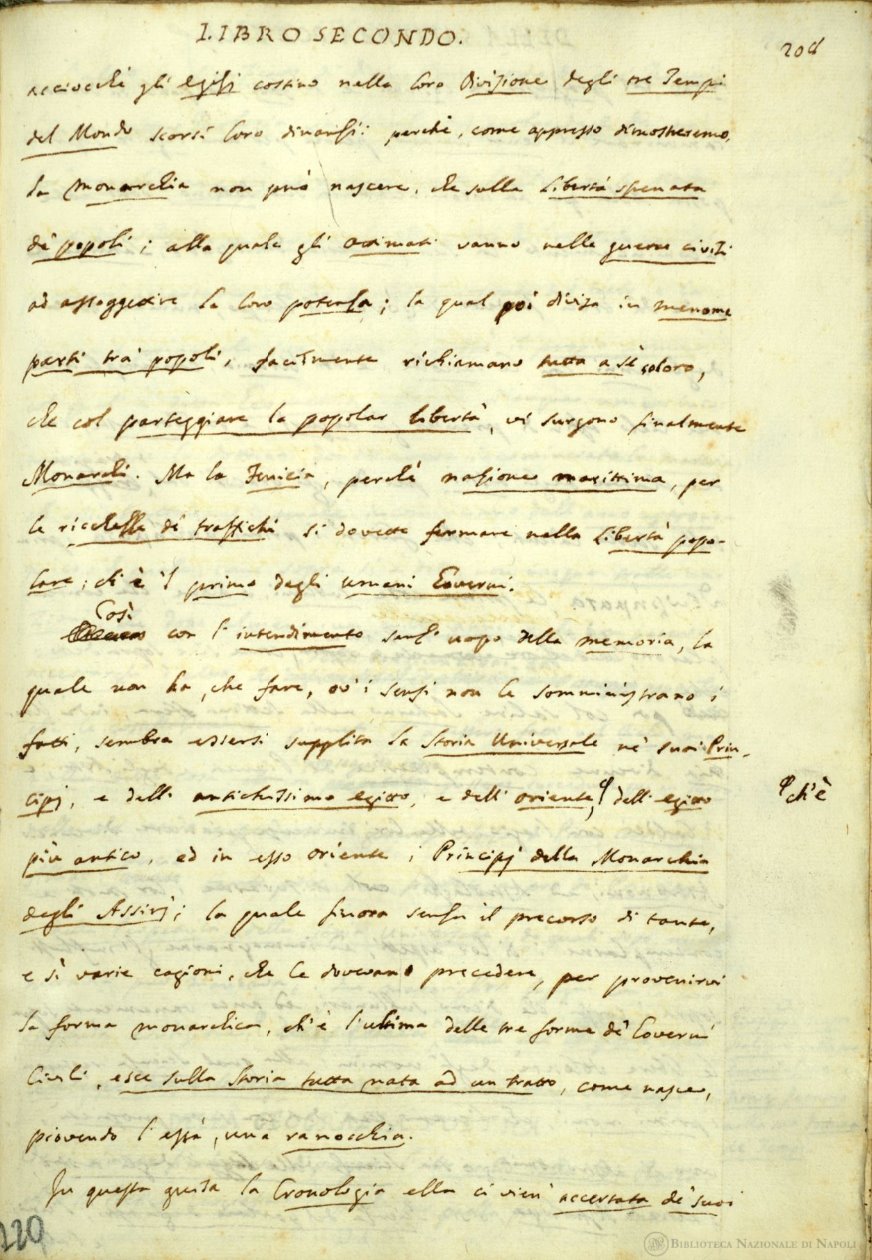 LIBRO SECONDO.
208
acciocchè gli Egizj costino nella loro Divisione degli tre Tempi
del Mondo scorsi loro dinanzi: perchè, come appresso dimostreremo,
la Monarchia non può nascere, che sulla Libertà sfrenata
de' popoli; alla quale gli ottimati vanno nelle guerre civili
ad assoggettire la loro potenza; la qual poi divisa in menome
parti tra' popoli, facilmente richiamano tutta a sè coloro,
che col parteggiare la popolar libertà, vi surgono finalmente
Monarchi. Ma la Fenicia, perchè nazione marittima, per
le ricchezze de' traffichi si dovette fermare nella Libertà popo-
lare; ch'è 'l primo degli umani Governi.
Così
con l'intendimento senz'uopo della memoria, la
quale non ha, che fare, ov'i sensi non le somministrano i
fatti, sembra essersi supplita la Storia Universale ne' suoi Prin-
cipj, e dell'antichissimo Egitto, e dell'oriente, dell'Egitto
ch'è
più antico, ed in esso oriente i Principj della Monarchia
degli Assirj; la quale finora senza il precorso di tante,
e sì varie cagioni, che le dovevano precedere, per provenirvi
la forma monarchica, ch'è l'ultima delle tre forme de' Governi
Civili, esce sulla Storia tutta nata ad un tratto, come nasce,
piovendo l'està, una ranocchia.
In questa guisa la Cronologia ella ci vien' accertata de' suoi
220
BIBLIOTECA NAZIONALE DI NAPOLI